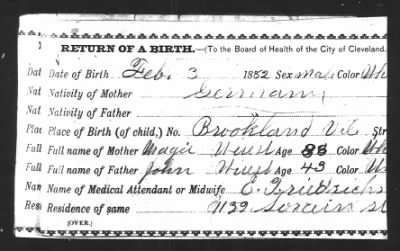 RETURN OF A BIRTH.—(To the Board of Health of the City of Cleveland.
Dat Date of Birth Feb. 3 1882 Sex male Color Wh
Nat Nativity of Mother Germany
Nat Nativity of Father
Plac Place of Birth (of child,) No. Brookland Str
Full Full name of Mother Magie Wuest Age 38 Color Wh
Full Full name of Father John Wuest Age 43 Color
Nam Name of Medical Attendant or Midwife C. Friedrichs
Resi Residence of same 1139 st
(OVER.)